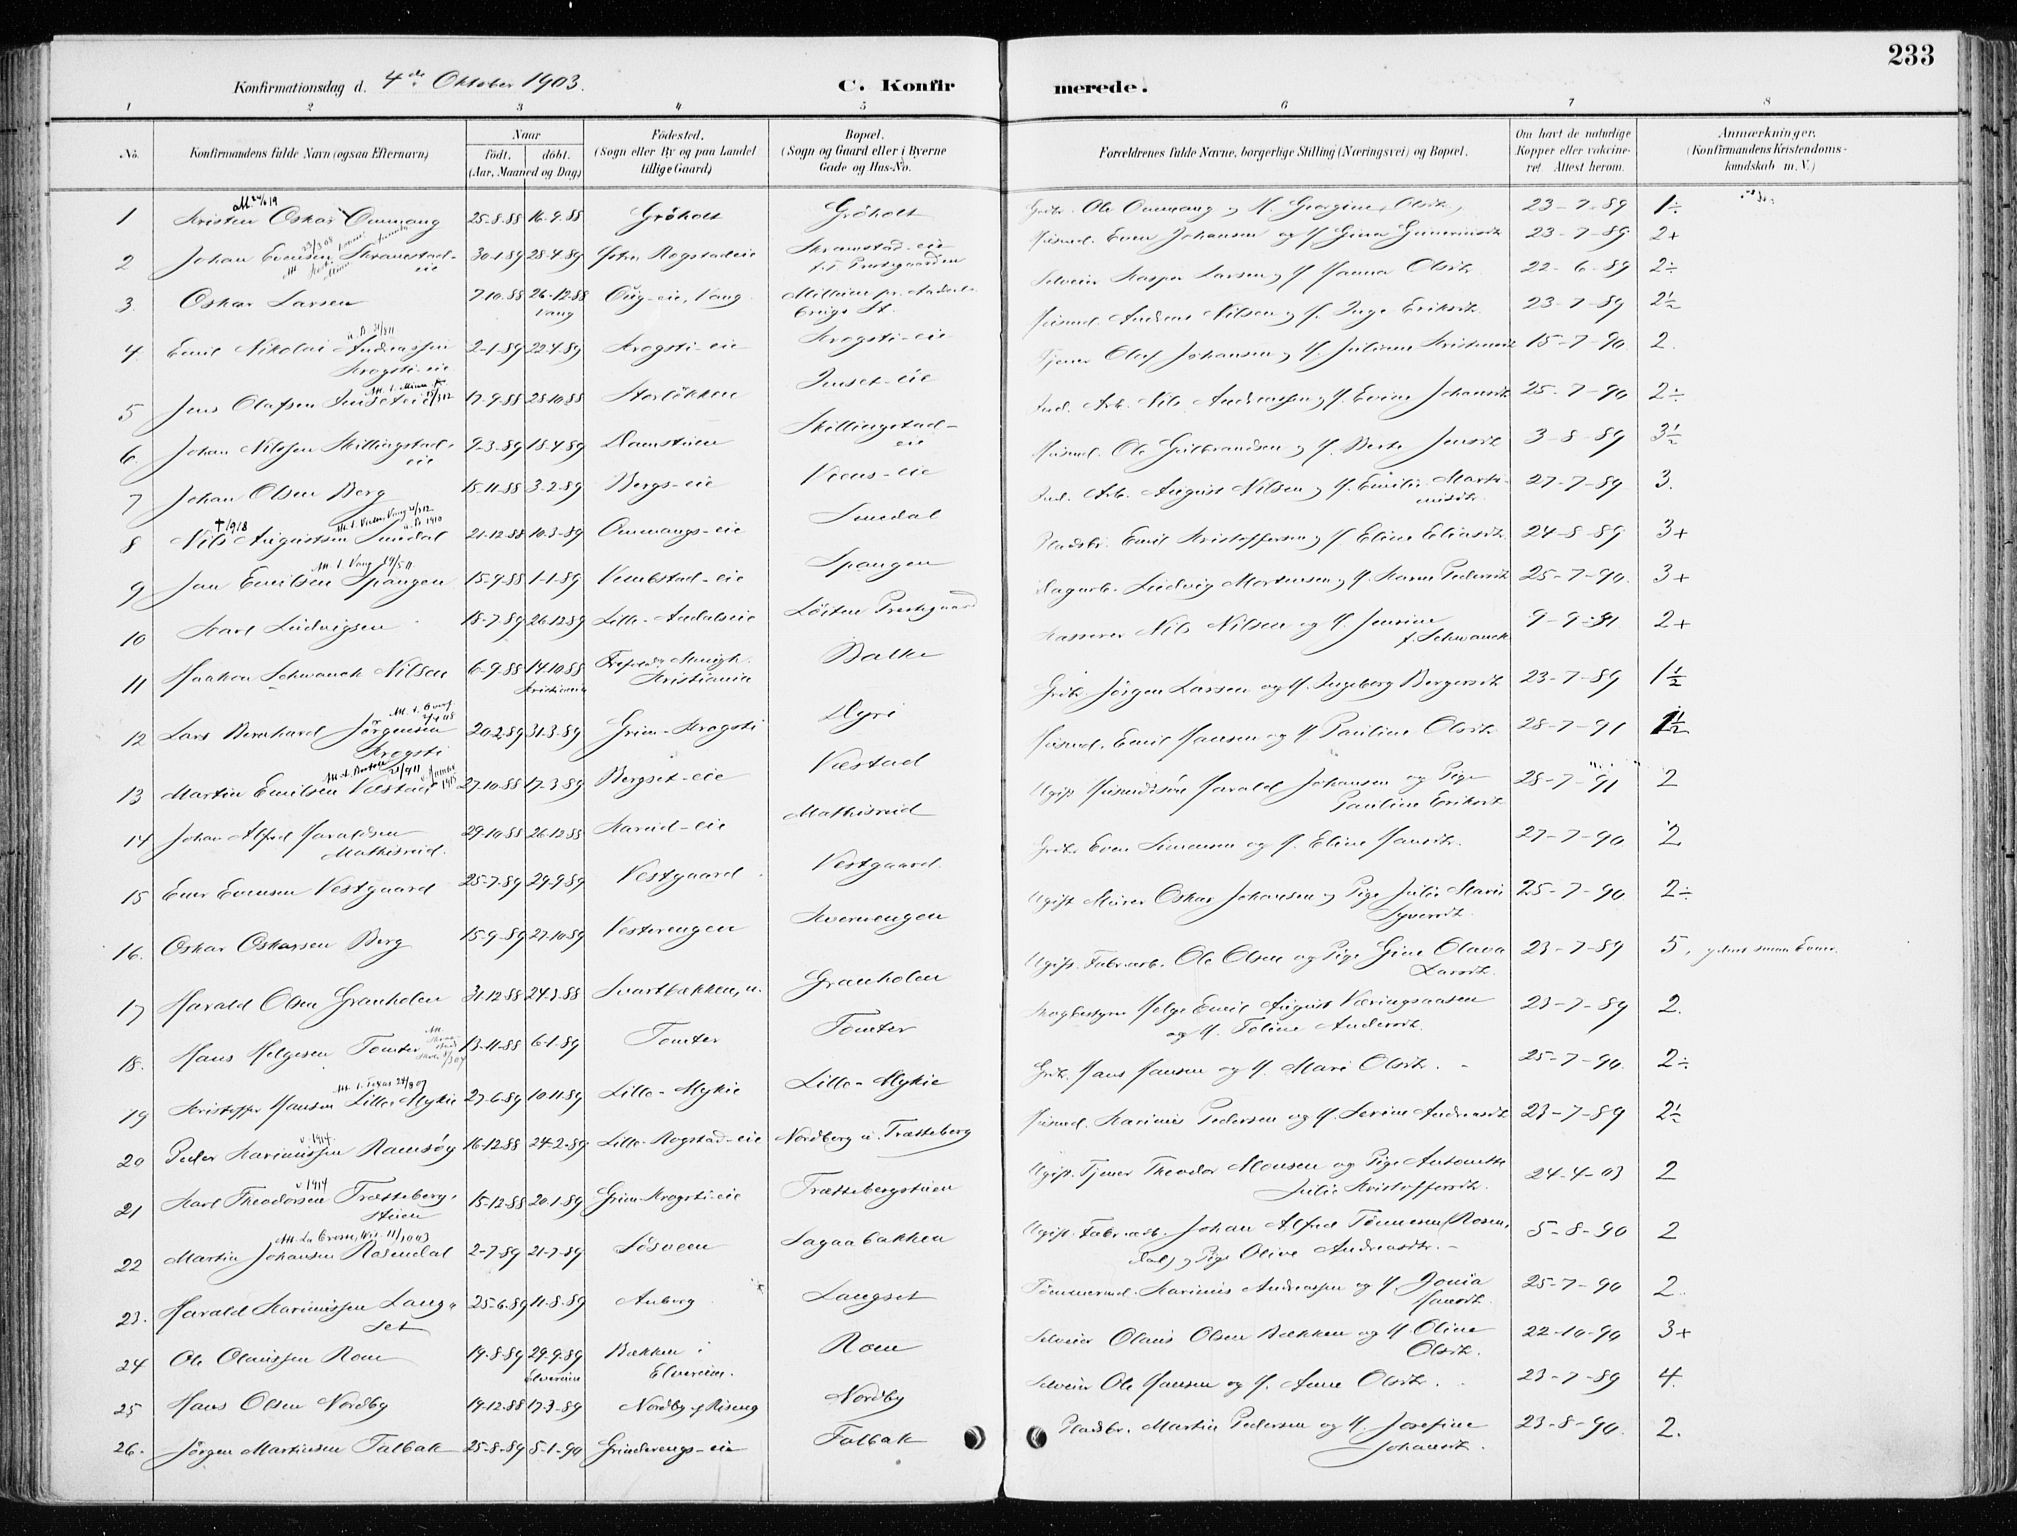 233
Konfirmationsdag d. 4de Oktober 1903.
C. Konfirmerede.
1 2 3 4 5 6 7 8
No.
Konfirmandens fulde Navn (ogsaa Efternavn)
Naar
født. døbt.
(Aar, Maaned og Dag)
Fødested.
(Sogn eller By og paa Landet tillige Gaard)
Bopæl.
(Sogn og Gaard eller i Byerne Gade og Hus-No.
Forældrenes fulde Navne, borgerlige Stilling (Næringsvei) og Bopæl.
Om havt de naturlige Kopper eller vakcineret. Attest herom.
Anmærkninger.
(Konfirmandens Kristendomskundskab m. V.)
1 Kristen Oskar Ommang 25-8-88 16-9-88 Gröholt Gröholt Grbr. Ole Ommang og H. Georgine Olsdtr. 23-7-89 1÷
2 Johan Evensen Skramstad-eie 30-1-89 28-4-89 Rogstadeie Skramstad-eie Husmd. Even Johansen og H. Gina Guneriusdtr 23-7-89 2+
3. Oskar Larsen 7-10-88 26-12-88 Vang -eie, Vang Selveier Kasper Larsen og H. Hanna Olsdtr. 22-6-89 2÷
4 Emil Nikolai Andreassen Krogsti-eie 2-1-89 22-4-89 Krogsti-eie Krogsti-eie Husmd. Andreas Nilsen og H. Inge Eriksdtr. 23-7-89 2½
5 Jens Olafsen Imseteie 17-9-88 28-10-88 Storlökken Imset-eie Tjener Olaf Johansen og H. Juliane 15-7-90 2.
6. Johan Nilssen Skillingstad-eie 9-3-89 18-4-89 Damstuen Skillingstad-eie Ind. Arb. Nils Andreassen og H. Evine Johansdtr 25-7-90 2÷
7 Johan Olsen Berg 15-11-88 3-2-89 Bergs-eie Veens-eie Husmd. Ole Gulbrandsen og H. Berte Jensdtr 3-8-89 3½
8 † 1918 Nils Augustsen Smedal 21-12-88 10-3-89 Ommangs-eie Smedal Ind. Arb. August Nilsen og H. Emilie Martinusdtr. 27-7-89 3.
9 Jan Emilsen Spangen 15-9-88 1-1-89 Vembstad-eie Spangen Pladsbr. Emil Kristoffersen og H. Eline Eliasdtr. 24-8-89 3+
10 Karl Ludvigsen 18-7-89 26-12-89 Lille-Aadalseie Löiten Prestegaard Dagarb. Ludvig Mortensen og H. Karen Pedersdtr 25-7-90. 3+
11 Haakon Schwanck Nilsen 6-9-88 14-10-88 Kristiania Kristiania Balke Kasserer Nils Nilsen og H. Jensine f. Schwanck 9-9-91 2+
12 Lars Bernhard Jørgensen Krogsti 20-2-89 31-3-89 Grim-Krogsti Dyri Grbr. Jörgen Larsen og H. Ingeborg Bergersdtr 23-7-89 1½
13 Martin Emilsen Væstad 27-10-88 17-3-89 Bergset-eie Væstad Husmd. Emil Hansen og H. Pauline Olsdtr 28-7-91 1½
14 Johan Alfred Haraldsen Mathisrud. 29-10-88 26-12-88 -eie Mathisrud Ugift Husmdsön Harald Johansen og Pige Pauline Eriksdtr 28-7-91 2
15 Even Evensen Vestgaard 25-7-89 29-9-89 Vestgaard Vestgaard. Grbr Even Simensen og H. Eline Hansdtr. 27-7-90 2
16. Oskar Oskarsen Berg 15-9-89 27-10-89 Vesterengen Kvernengen Ugift Murer Oskar Johansen og Pige Julie Marie Syversdtr. 25-7-90 2÷
17 Harald Olsen Granholen 31-12-88 24-3-88 Svartbakken, u. Granholen Ugift Fabr.arb. Ole Olsen og Pige Gine Olava Larsdtr. 23-7-89 5,
18. Hans Helgesen Tomter 13-11-88 6-1-89 Tomter Tomter Skogbestyrer Helge Emil August Næringsaasen og H. Toline Andersdtr. 23-7-89 2.
19 Kristoffer Hansen Lille-Mykie 27-6-89 10-11-89 Lille-Mykie Lille-Mykie Grbr. Hans Hansen og H. Mari Olsdtr. 25-7-90. 2÷
20 v. 1914. Peder Karinussen Ramsøy 16-12-88 24-2-89 Lille-Rogstad-eie Nordberg u. Trætteberg Husmd. Karinus Pedersen og H. Serine Andreasdtr 23-7-89 2½
21 v 1914 Karl Theodorsen Trættebergstuen 15-12-88 20-1-89 Grim-Krogsti-eie Trættebergstuen Ugift Tjener Theodor Monsen og Pige Antonette Julie Kristoffersdtr. 24-4-03 2
22 Martin Johansen Rosendal 2-7-89 21-7-89 Lösveen Sagaabakken Ugift. Fabr.arb. Johan Alfred Tönnesen (Rosendal) og Pige Oline Andreasdtr. 5-8-90 2
23. Harald Karinussen Langset 25-6-89 11-8-89 Auberg Langset Tömmermd. Karinus Andreassen og H. Jonia Hansdtr. 25-7-90 2.
24 Ole Olaussen Roen 19-8-89 29-9-89 Elverum Bakken i Elverum. Roen Selveier Olaus Olsen Bakken og H. Oline Olsdtr. 22-10-90 3+
25 Hans Olsen Nordby 19-12-88 17-3-89 Nordby af Riseng Nordby Selveier Ole Hansen og H. Anne Olsdtr. 23-7-89 4.
26. Jörgen Martinsen Talbak 25-8-89 5-1-90 Grinderengs-eie Talbak Pladsbr. Martin Pedersen og H. Josefine Johansdtr. 23-8-90. 2.